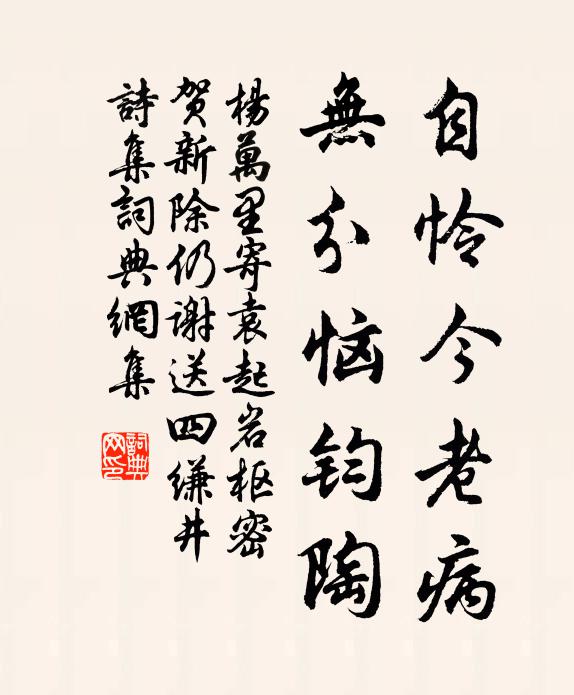 自怜今老病
無分恼钧陶
楊萬里寄袁起岩枢密
贺新除仍谢送四缣井
詩集詞典網集
詞典
网印